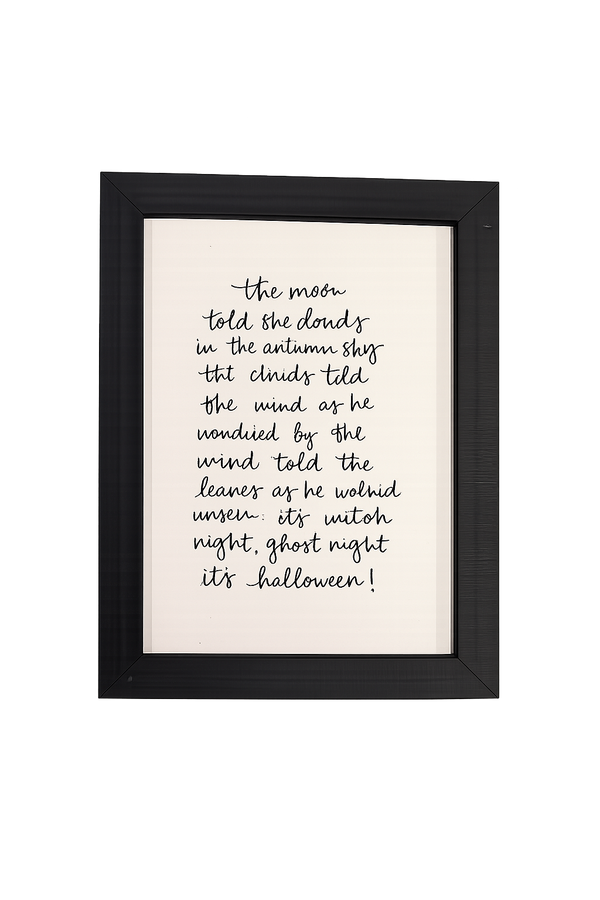 the moon
told she douds
in the antumn shy
tht clnids told
the wind as he
wonduied by the
wind told the
leanes as he wolnid
unsen: it's witoh
night, ghost night
it's halloween!